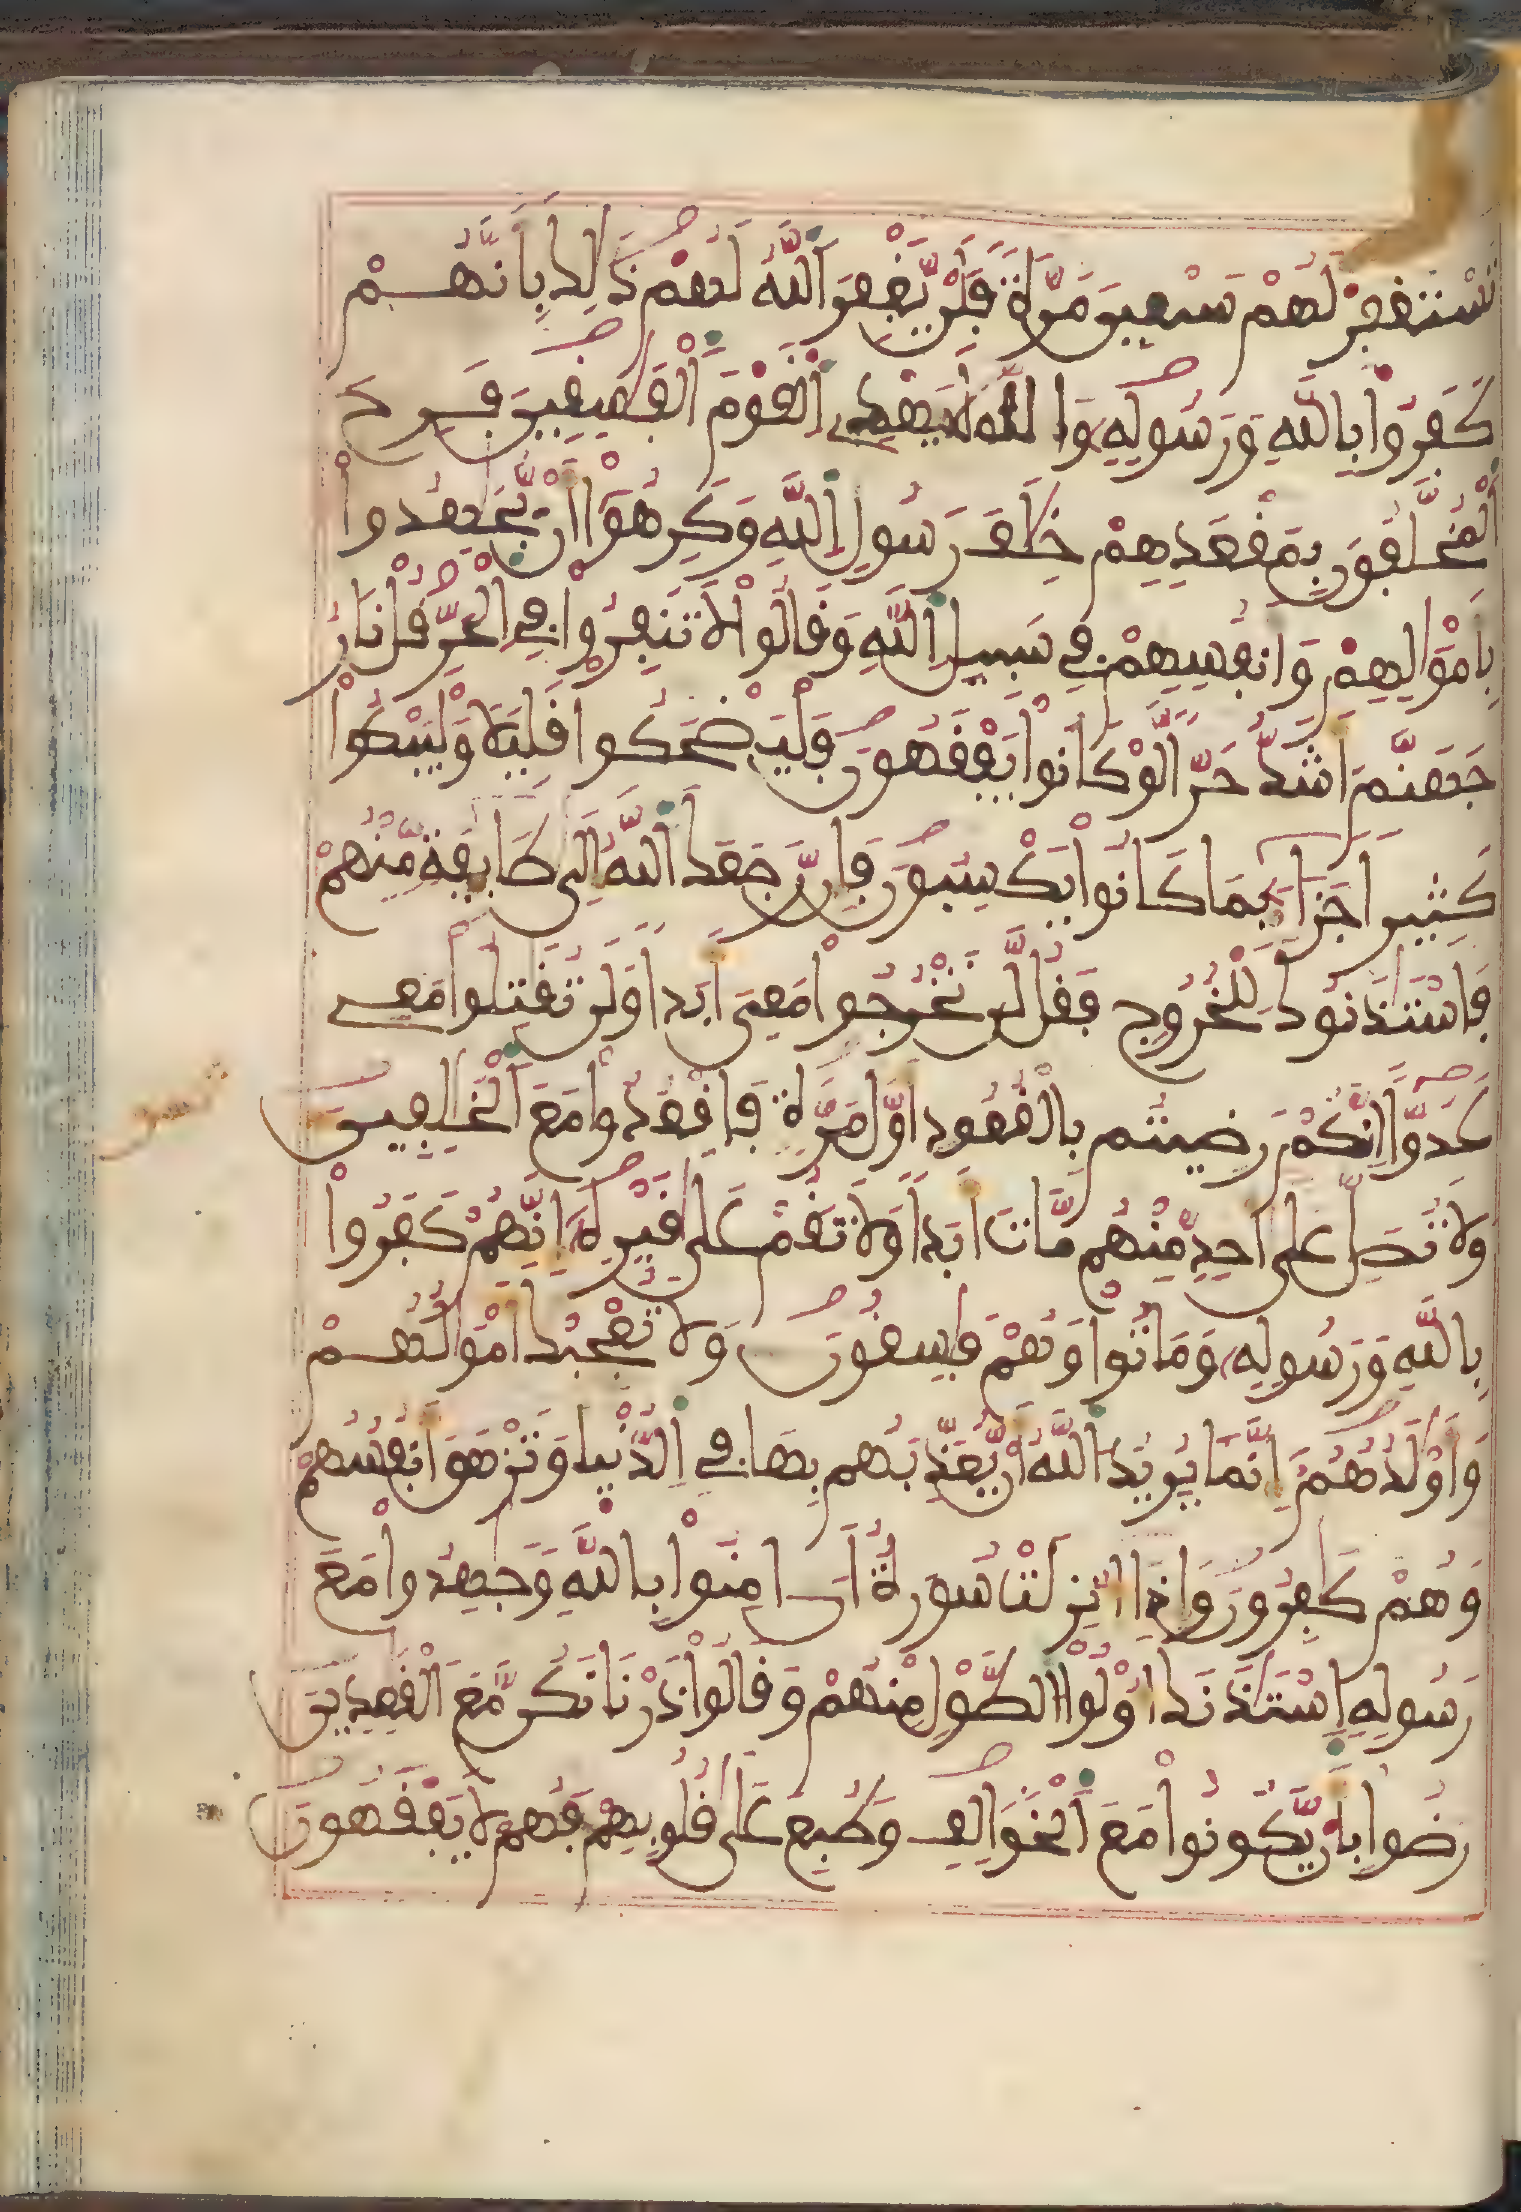 تَسْتَغْفِرْ لَهُمْ سَبْعِينَ مَرَّةً فَلَنْ يَّغْفِرَ اَللَّهُ لَهُمْ ذَٰلِكَ بِأَنَّهُمْ
كَفَرُواْ بِاللَّهِ وَرَسُولِهِ وَاللَّهُ لَا يَهْدِے اِلْقَوْمَ اَلْفَٰسِقِينَ فَرِحَ
اَلْمُخَلَّفُونَ بِمَقْعَدِهِمْ خِلَٰفَ رَسُولِ اِللَّهِ وَكَرِهُوٓاْ أَنْ يُّجَٰهِدُواْ
بِأَمْوَٰلِهِمْ وَأَنفُسِهِمْ فِے سَبِيلِ اِللَّهِ وَقَالُواْ لَا تَنفِرُواْ فِے اِلْحَرِّ قُلْ نَارُ
جَهَنَّمَ أَشَدُّ حَرّاً لَّوْ كَانُواْ يَفْقَهُونَ فَلْيَضْحَكُواْ قَلِيلًا وَلْيَبْكُواْ
كَثِيراً جَزَآءً بِمَا كَانُواْ يَكْسِبُونَ فَإِن رَّجَعَكَ اَللَّهُ إِلَىٰ طَآئِفَةٍ مِّنْهُمْ
فَاسْتَـْٔذَنُوكَ لِلْخُرُوجِ فَقُل لَّن تَخْرُجُواْ مَعِىَ أَبَداً وَلَن تُقَٰتِلُواْ مَعِے
عَدُوّاً اِنَّكُمْ رَضِيتُم بِالْقُعُودِ أَوَّلَ مَرَّةٍ فَاقْعُدُواْ مَعَ اَلْخَٰلِفِينَ
وَلَا تُصَلِّ عَلَىٰ أَحَدٍ مِّنْهُم مَّاتَ أَبَداً وَلَا تَقُمْ عَلَىٰ قَبْرِهِ إِنَّهُمْ كَفَرُواْ
بِاللَّهِ وَرَسُولِهِ وَمَاتُواْ وَهُمْ فَٰسِقُونَ وَلَا تُعْجِبْكَ أَمْوَٰلُهُمْ
وَأَوْلَٰدُهُمُ إِنَّمَا يُرِيدُ اَللَّهُ أَنْ يُّعَذِّبَهُم بِهَا فِے اِلدُّنْيَا وَتَزْهَقَ أَنفُسُهُمْ
وَهُمْ كَٰفِرُونَ وَإِذَآ أُنزِلَتْ سُورَةٌ أَنَ اٰمِنُواْ بِاللَّهِ وَجَٰهِدُواْ مَعَ
رَسُولِهِ اِسْتَـْٔذَنَكَ أُوْلُواْ اُلطَّوْلِ مِنْهُمْ وَقَالُواْ ذَرْنَا نَكُن مَّعَ اَلْقَٰعِدِينَ
رَضُواْ بِأَنْ يَّكُونُواْ مَعَ اَلْخَوَالِفِ وَطُبِعَ عَلَىٰ قُلُوبِهِمْ فَهُمْ لَا يَفْقَهُونَ